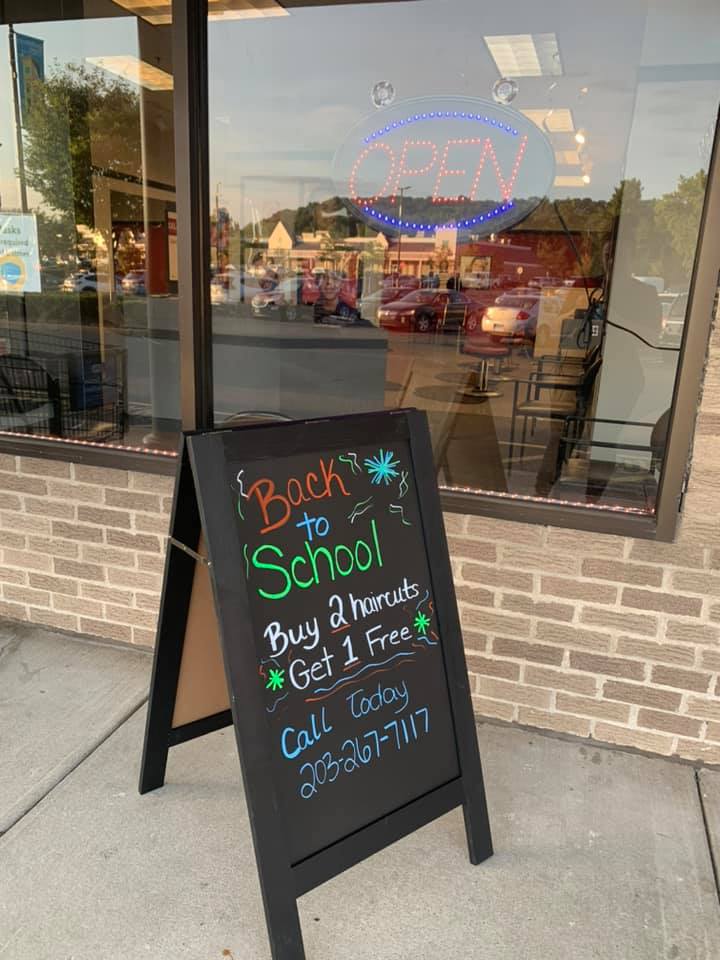 OPEN
asks
required
Back
to
School
Buy 2 haircuts
Get 1 Free
Call Today
203-267-7117